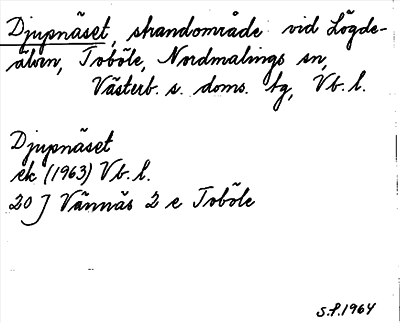 Djupnäset, strandområde vid Lögde-
älven, Tobõle, Nordmalings sn,
Västerb. s. doms. tg, Vb. l.
Djupnäset
ek (1963) Vb. l.
20 J Vännäs 2 e Tobõle
S.P. 1964